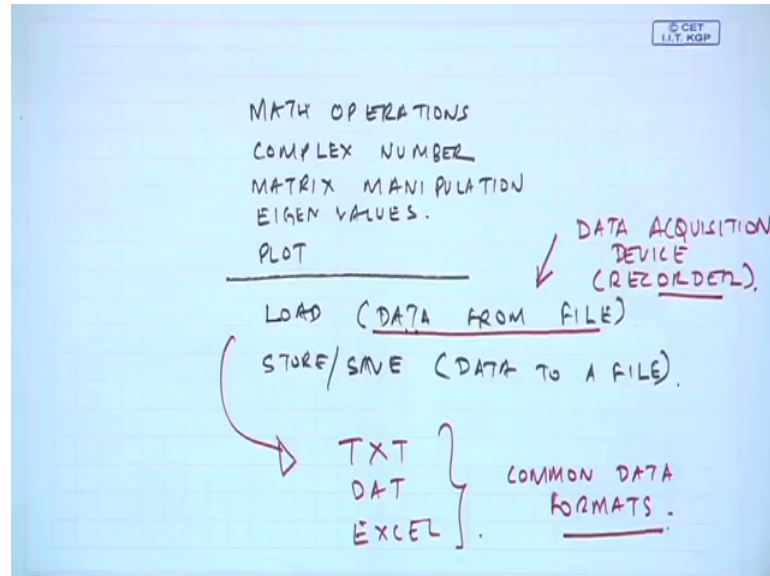 © CET
I.I.T. KGP
MATH OPERATIONS
COMPLEX NUMBER
MATRIX MANIPULATION
EIGEN VALUES.
PLOT
DATA ACQUISITION
DEVICE
(RECORDER).
LOAD (DATA FROM FILE)
STORE/SAVE (DATA TO A FILE).
TXT
DAT
EXCEL
COMMON DATA
FORMATS.